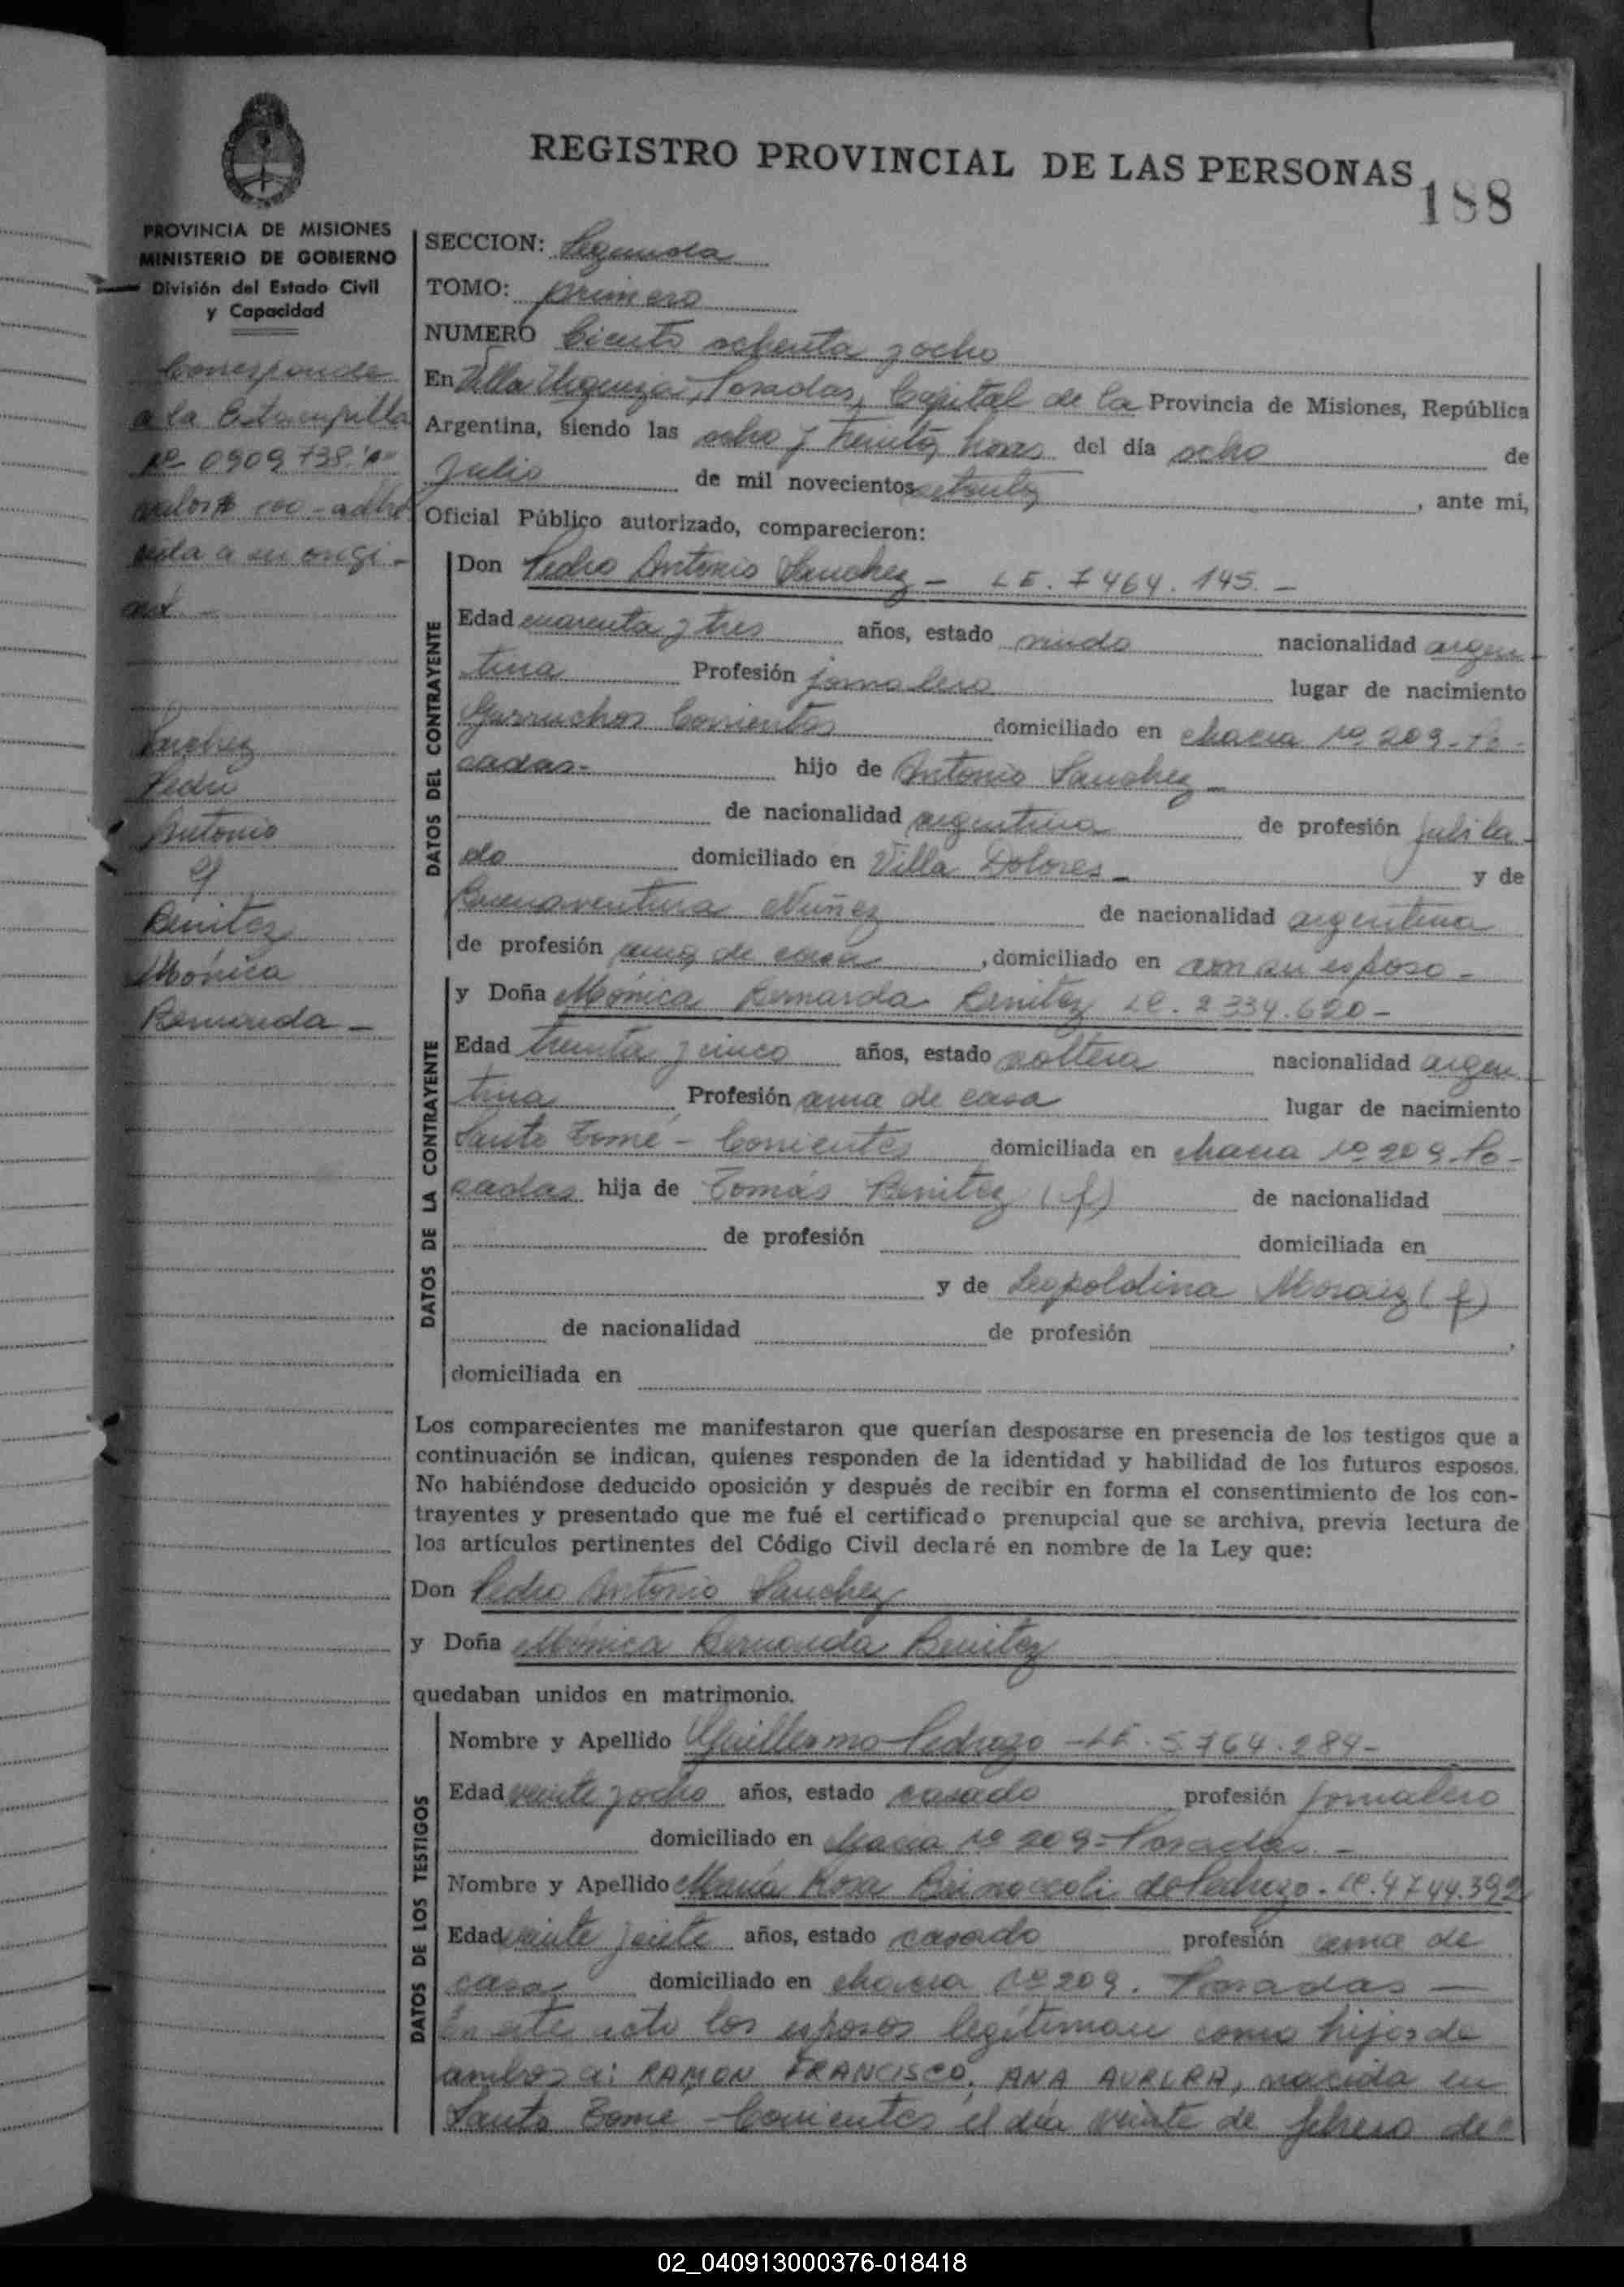 REGISTRO PROVINCIAL DE LAS PERSONAS
188
PROVINCIA DE MISIONES
MINISTERIO DE GOBIERNO
División del Estado Civil
y Capacidad
Corresponde
a la Estampilla
Nº 0909738
valor $ 100 - adhe
rida a su origi-
nal -
Sanchez
Pedro
Antonio
y
Benitez
Mónica
Bernarda -
SECCION: Segunda
TOMO: primero
NUMERO Ciento ochenta y ocho
En Villa Urquiza, Posadas, Capital de la Provincia de Misiones, República
Argentina, siendo las ocho y treinta horas del día ocho de
Julio de mil novecientos setenta, ante mi,
Oficial Público autorizado, comparecieron:
DATOS DEL CONTRAYENTE
Don Pedro Antonio Sanchez - LE. 7464.145. -
Edad cuarenta y tres años, estado viudo nacionalidad argen
tina Profesión jornalero lugar de nacimiento
Garruchos Corrientes domiciliado en chacra Nº 209 - Po-
sadas - hijo de Antonio Sanchez -
de nacionalidad argentina de profesión jubila-
do domiciliado en Villa Dolores - y de
Buenaventura Nuñez de nacionalidad argentina
de profesión ama de casa, domiciliado en con su esposo -
DATOS DE LA CONTRAYENTE
y Doña Mónica Bernarda Benitez LC. 2334.620 -
Edad treinta y cinco años, estado soltera nacionalidad argen
tina Profesión ama de casa lugar de nacimiento
Santo Tomé - Corrientes domiciliada en chacra Nº 209 Po-
sadas hija de Tomás Benitez (f) de nacionalidad
de profesión domiciliada en
y de Leopoldina Moraiz (f)
de nacionalidad de profesión ,
domiciliada en
Los comparecientes me manifestaron que querían desposarse en presencia de los testigos que a
continuación se indican, quienes responden de la identidad y habilidad de los futuros esposos.
No habiéndose deducido oposición y después de recibir en forma el consentimiento de los con-
trayentes y presentado que me fué el certificado prenupcial que se archiva, previa lectura de
los artículos pertinentes del Código Civil declaré en nombre de la Ley que:
Don Pedro Antonio Sanchez
y Doña Mónica Bernarda Benitez
quedaban unidos en matrimonio.
DATOS DE LOS TESTIGOS
Nombre y Apellido Guillermo Pedrozo - LE. 5764.284 -
Edad veinte y ocho años, estado casado profesión jornalero
domiciliado en chacra Nº 209 - Posadas. -
Nombre y Apellido María Rosa de Pedrozo - LC. 4744.392
Edad veinte y siete años, estado casado profesión ama de
casa domiciliado en chacra Nº 209. Posadas -
En este acto los esposos legitiman como hijos de
ambos a: RAMON FRANCISCO, ANA AURORA, nacida en
Santo Tomé - Corrientes el día veinte de febrero de
02_040913000376-018418